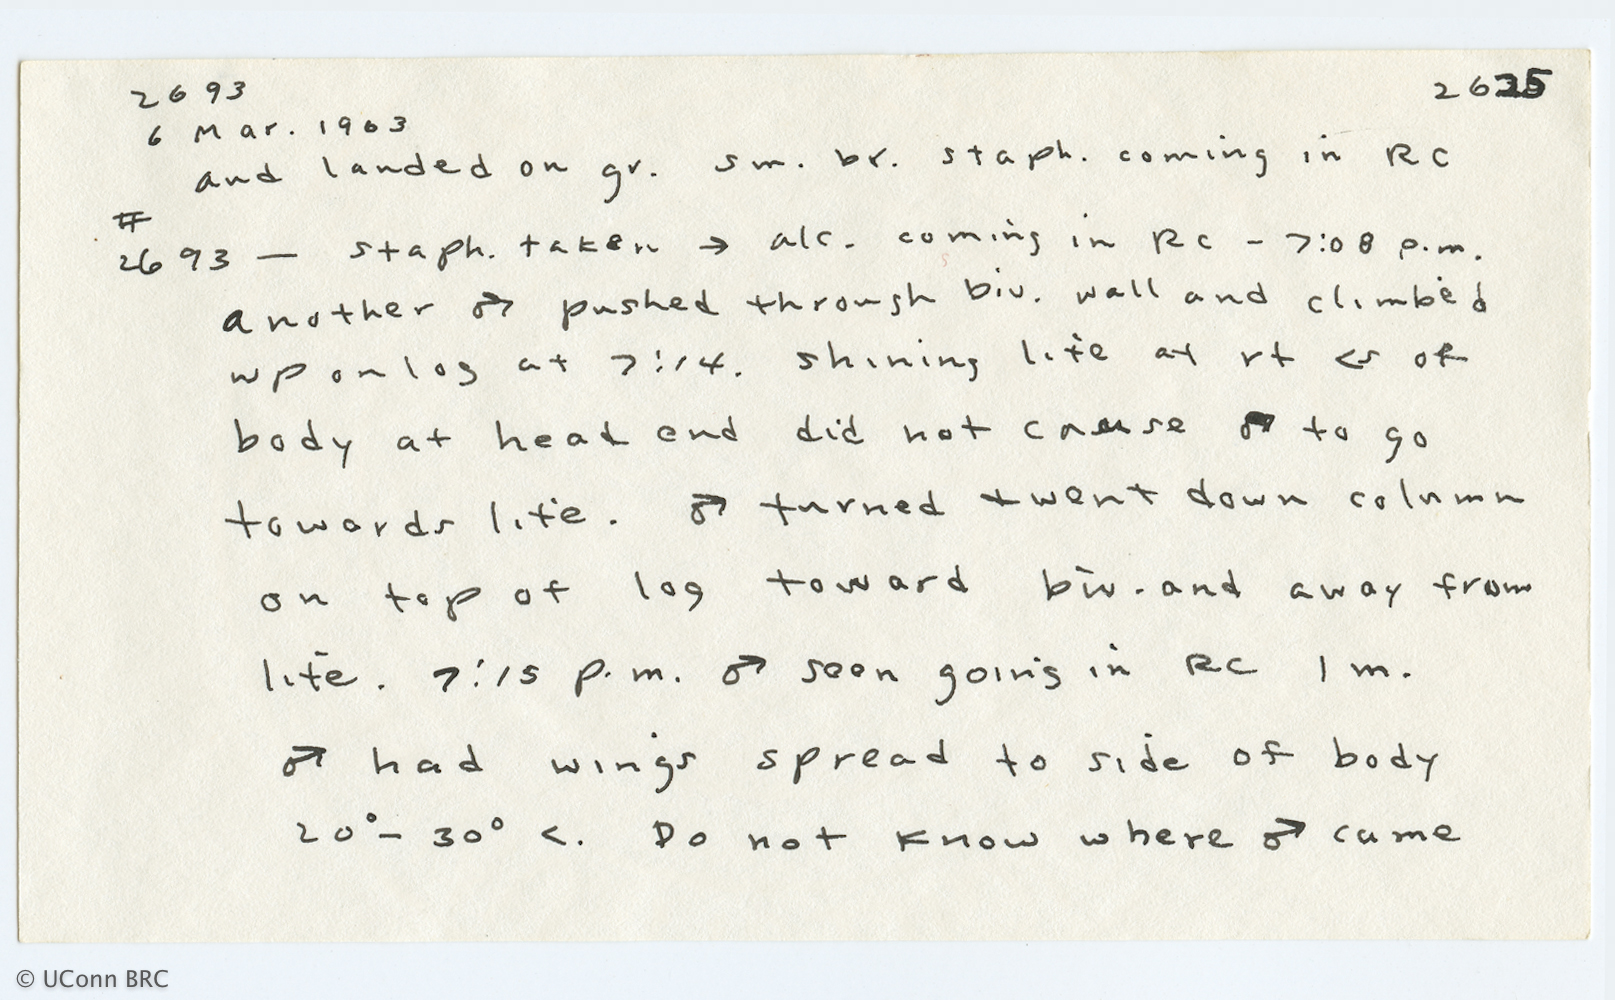 2693 2635
6 Mar. 1963
and landed on gr. sm. br. staph. coming in RC
#
2693 — staph. taken → alc. coming in RC - 7:08 p.m.
another ♂ pushed through biv. wall and climbed
up on log at 7:14. shining lite at rt <s of
body at head end did not cause ♂ to go
towards lite. ♂ turned + went down column
on top of log toward biv. and away from
lite. 7:15 p.m. ♂ seen going in RC 1 m.
♂ had wings spread to side of body
20° - 30° <. Do not know where ♂ came
© UConn BRC